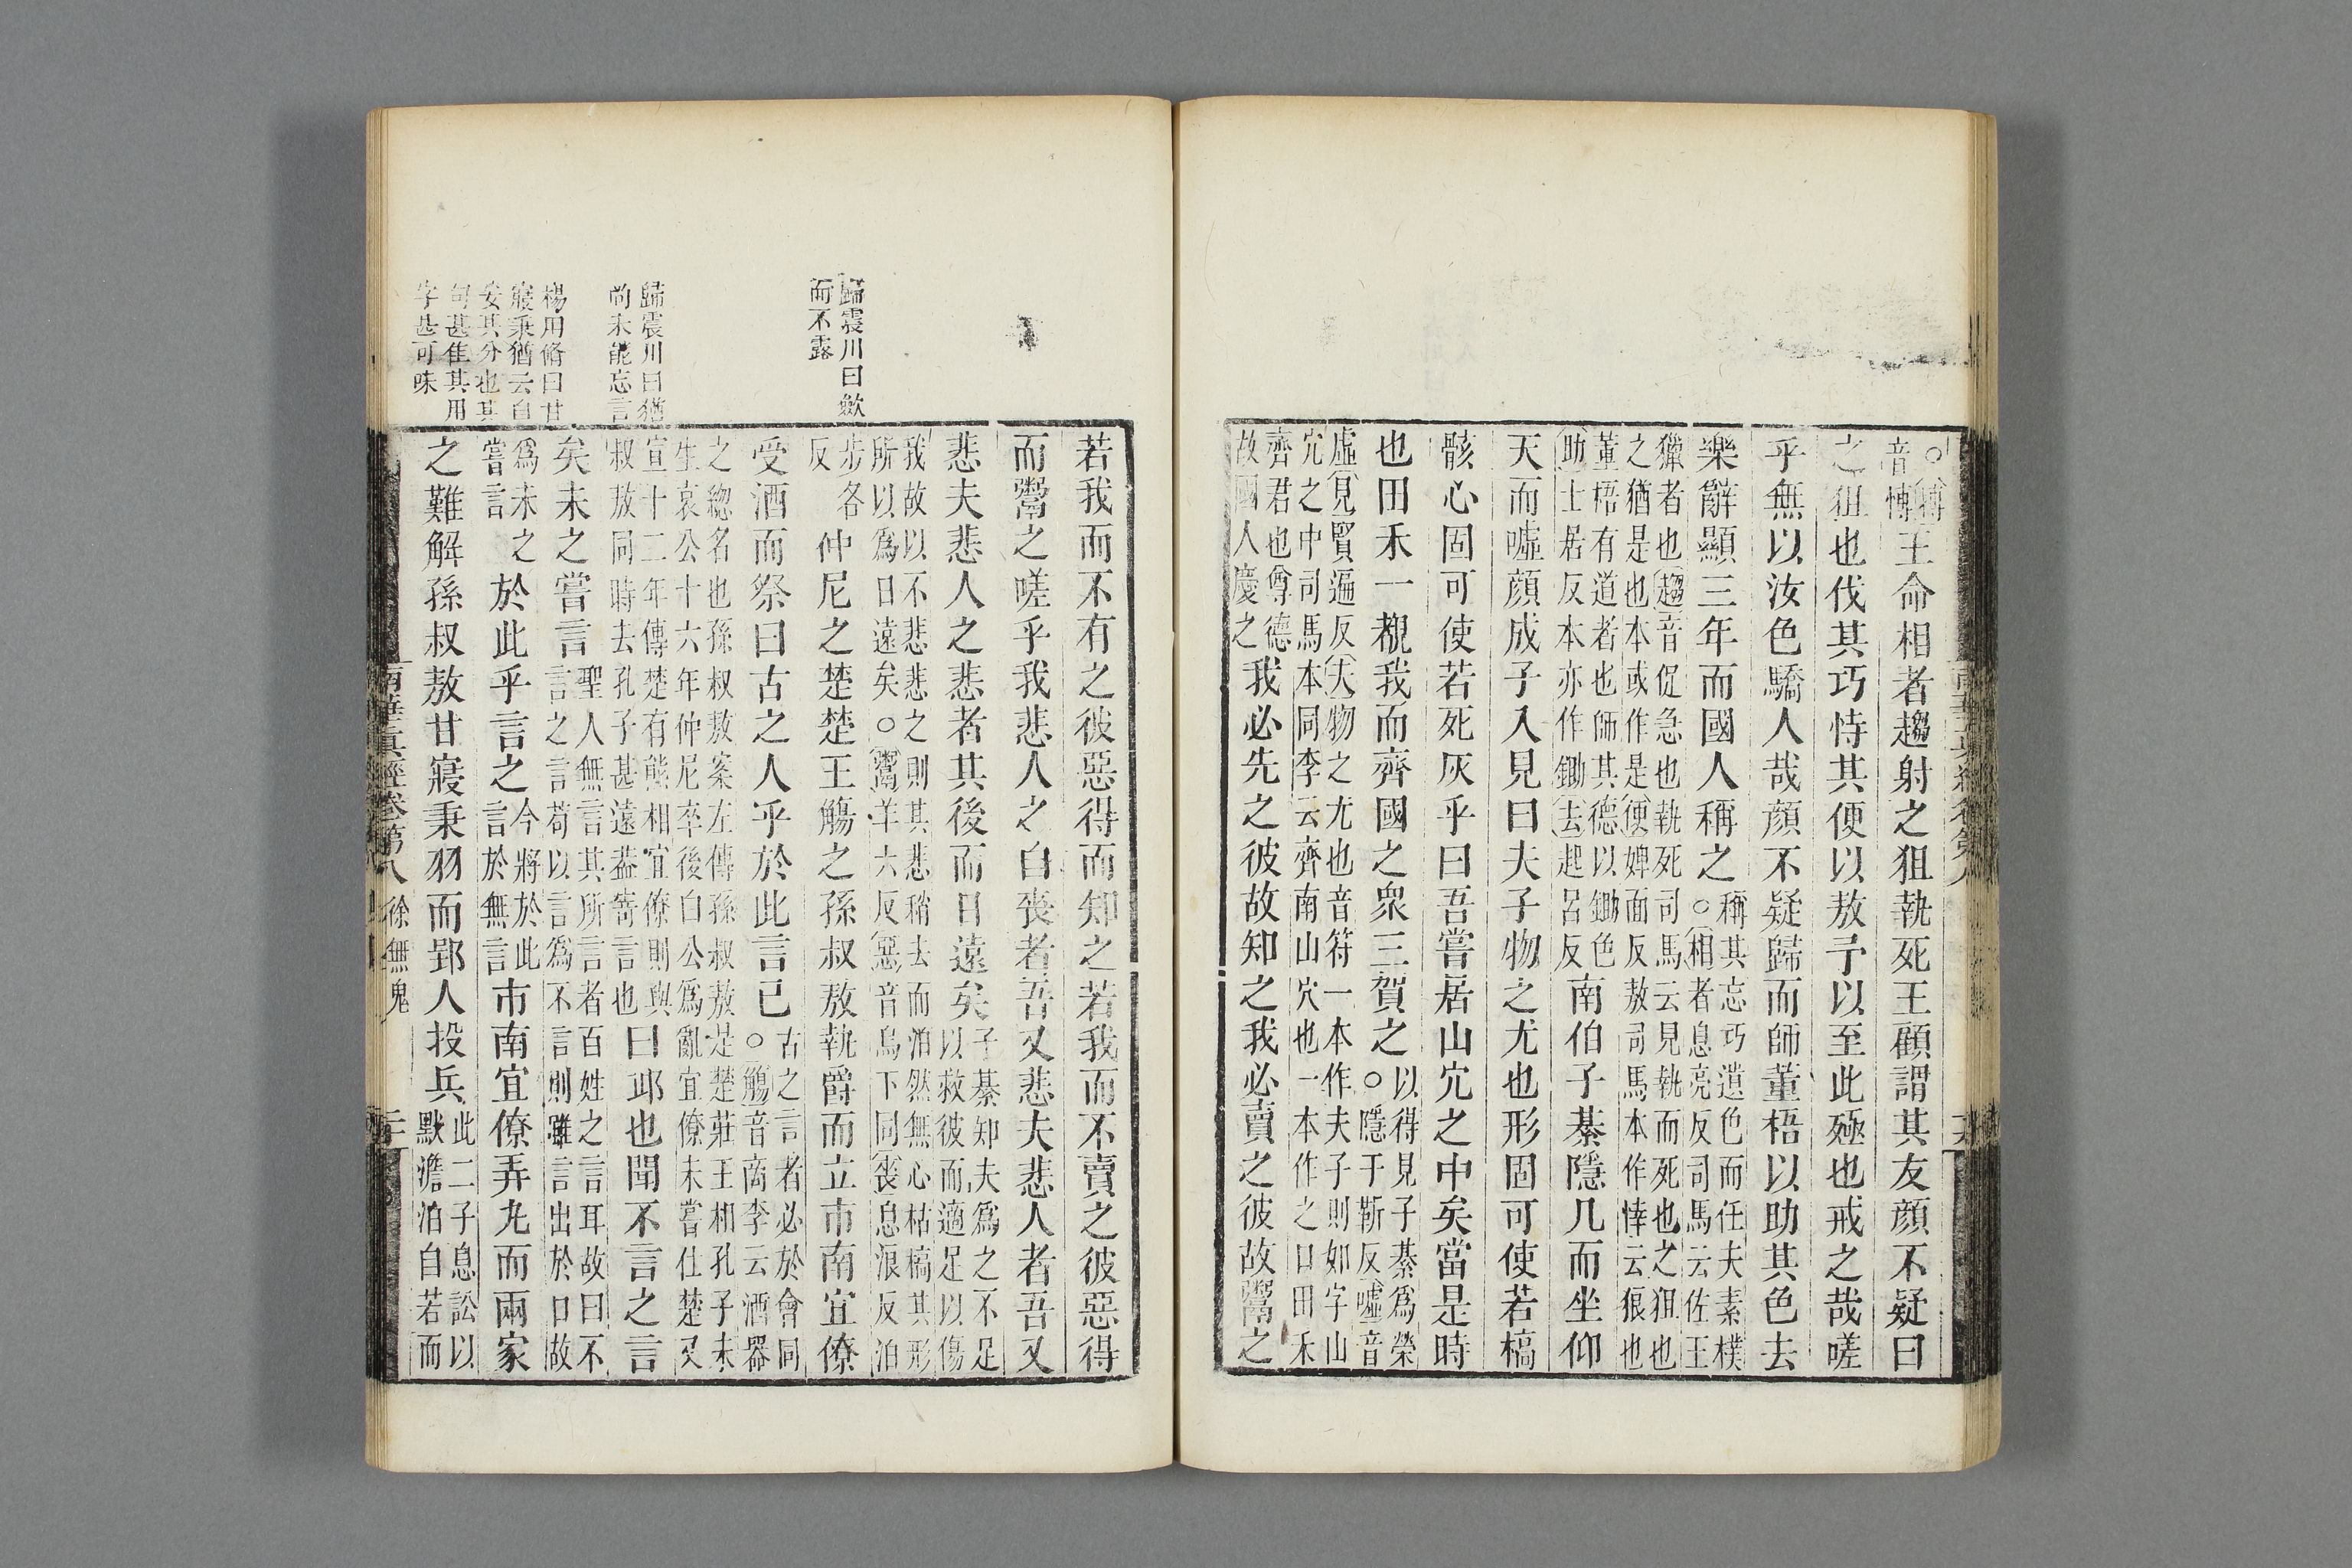 ○搏
音愽
王命相者趨射之狙執死王顧謂其友顏不疑曰
之狙也伐其巧恃其便以敖予以至此殛也戒之哉嗟
乎無以汝色驕人哉顏不疑歸而師董梧以助其色去
樂辭顯三年而國人稱之
稱其忘巧遺色而任夫素樸
○相者息亮反司馬云佐王
獵者也趨音促急也執死司馬云見執而死也之狙也
之猶是也本或作是便婢面反敖司馬本作悻云狠也
董梧有道者也師其德以鋤色
助士居反本亦作鋤去起呂反
南伯子綦隱几而坐仰
天而噓顏成子入見曰夫子物之尤也形固可使若槁
骸心固可使若死灰乎曰吾嘗居山穴之中矣當是時
也田禾一覩我而齊國之衆三賀之
以得見子綦爲榮
○隱于靳反噓音
虛見賢遍反夫物之尤也音符一本作夫子則如字山
穴之中司馬本同李云齊南山穴也一本作之口田禾
齊君也尊德
故國人慶之
我必先之彼故知之我必賣之彼故鬻之
若我而不有之彼惡得而知之若我而不賣之彼惡得
而鬻之嗟乎我悲人之自喪者吾又悲夫悲人者吾又
悲夫悲人之悲者其後而日遠矣
子綦知夫爲之不足
以救彼而適足以傷
我故以不悲悲之則其悲稍去而泊然無心枯槁其形
所以爲日遠矣○鬻羊六反惡音烏下同喪息浪反泊
步各
反
仲尼之楚楚王觴之孫叔敖執爵而立市南宜僚
受酒而祭曰古之人乎於此言已
古之言者必於會同
○觴音商李云酒器
之緫名也孫叔敖案左傳孫叔敖是楚莊王相孔子未
生哀公十六年仲尼卒後白公爲亂宜僚未嘗仕楚又
宣十二年傳楚有熊相宜僚則與
叔敖同時去孔子甚遠葢寄言也
曰丘也聞不言之言
矣未之嘗言
聖人無言其所言者百姓之言耳故曰不
言之言苟以言爲不言則雖言出於口故
爲未之
嘗言
於此乎言之
今將於此
言於無言
市南宜僚弄丸而兩家
之難解孫叔敖甘寢秉羽而郢人投兵
此二子息訟以
默澹泊自若而
南華眞經卷第八
徐無鬼
歸震川曰歛
而不露
歸震川曰猶
尚未能忘言
楊用脩曰甘
寢秉猶云自
安其分也其
句甚隹其用
字甚可味